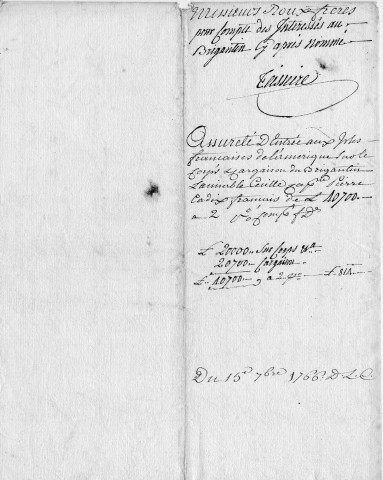 Messieurs Roux freres
pour Compte des Interessés au
Brigantin Cy apres nommé
Teissiere
Assureté D'Entrée aux Isles
françaises de l'amerique Sur le
Corps & Cargaison du Brigantin
L'aimable Cap.ne Pierre
Cadix francais de L 40700
a 2
L 20000 Sur Corps
20700 Cargaison
L 40700 a 2 p L 814
Du 15e 7bre 1766 D. L. C.